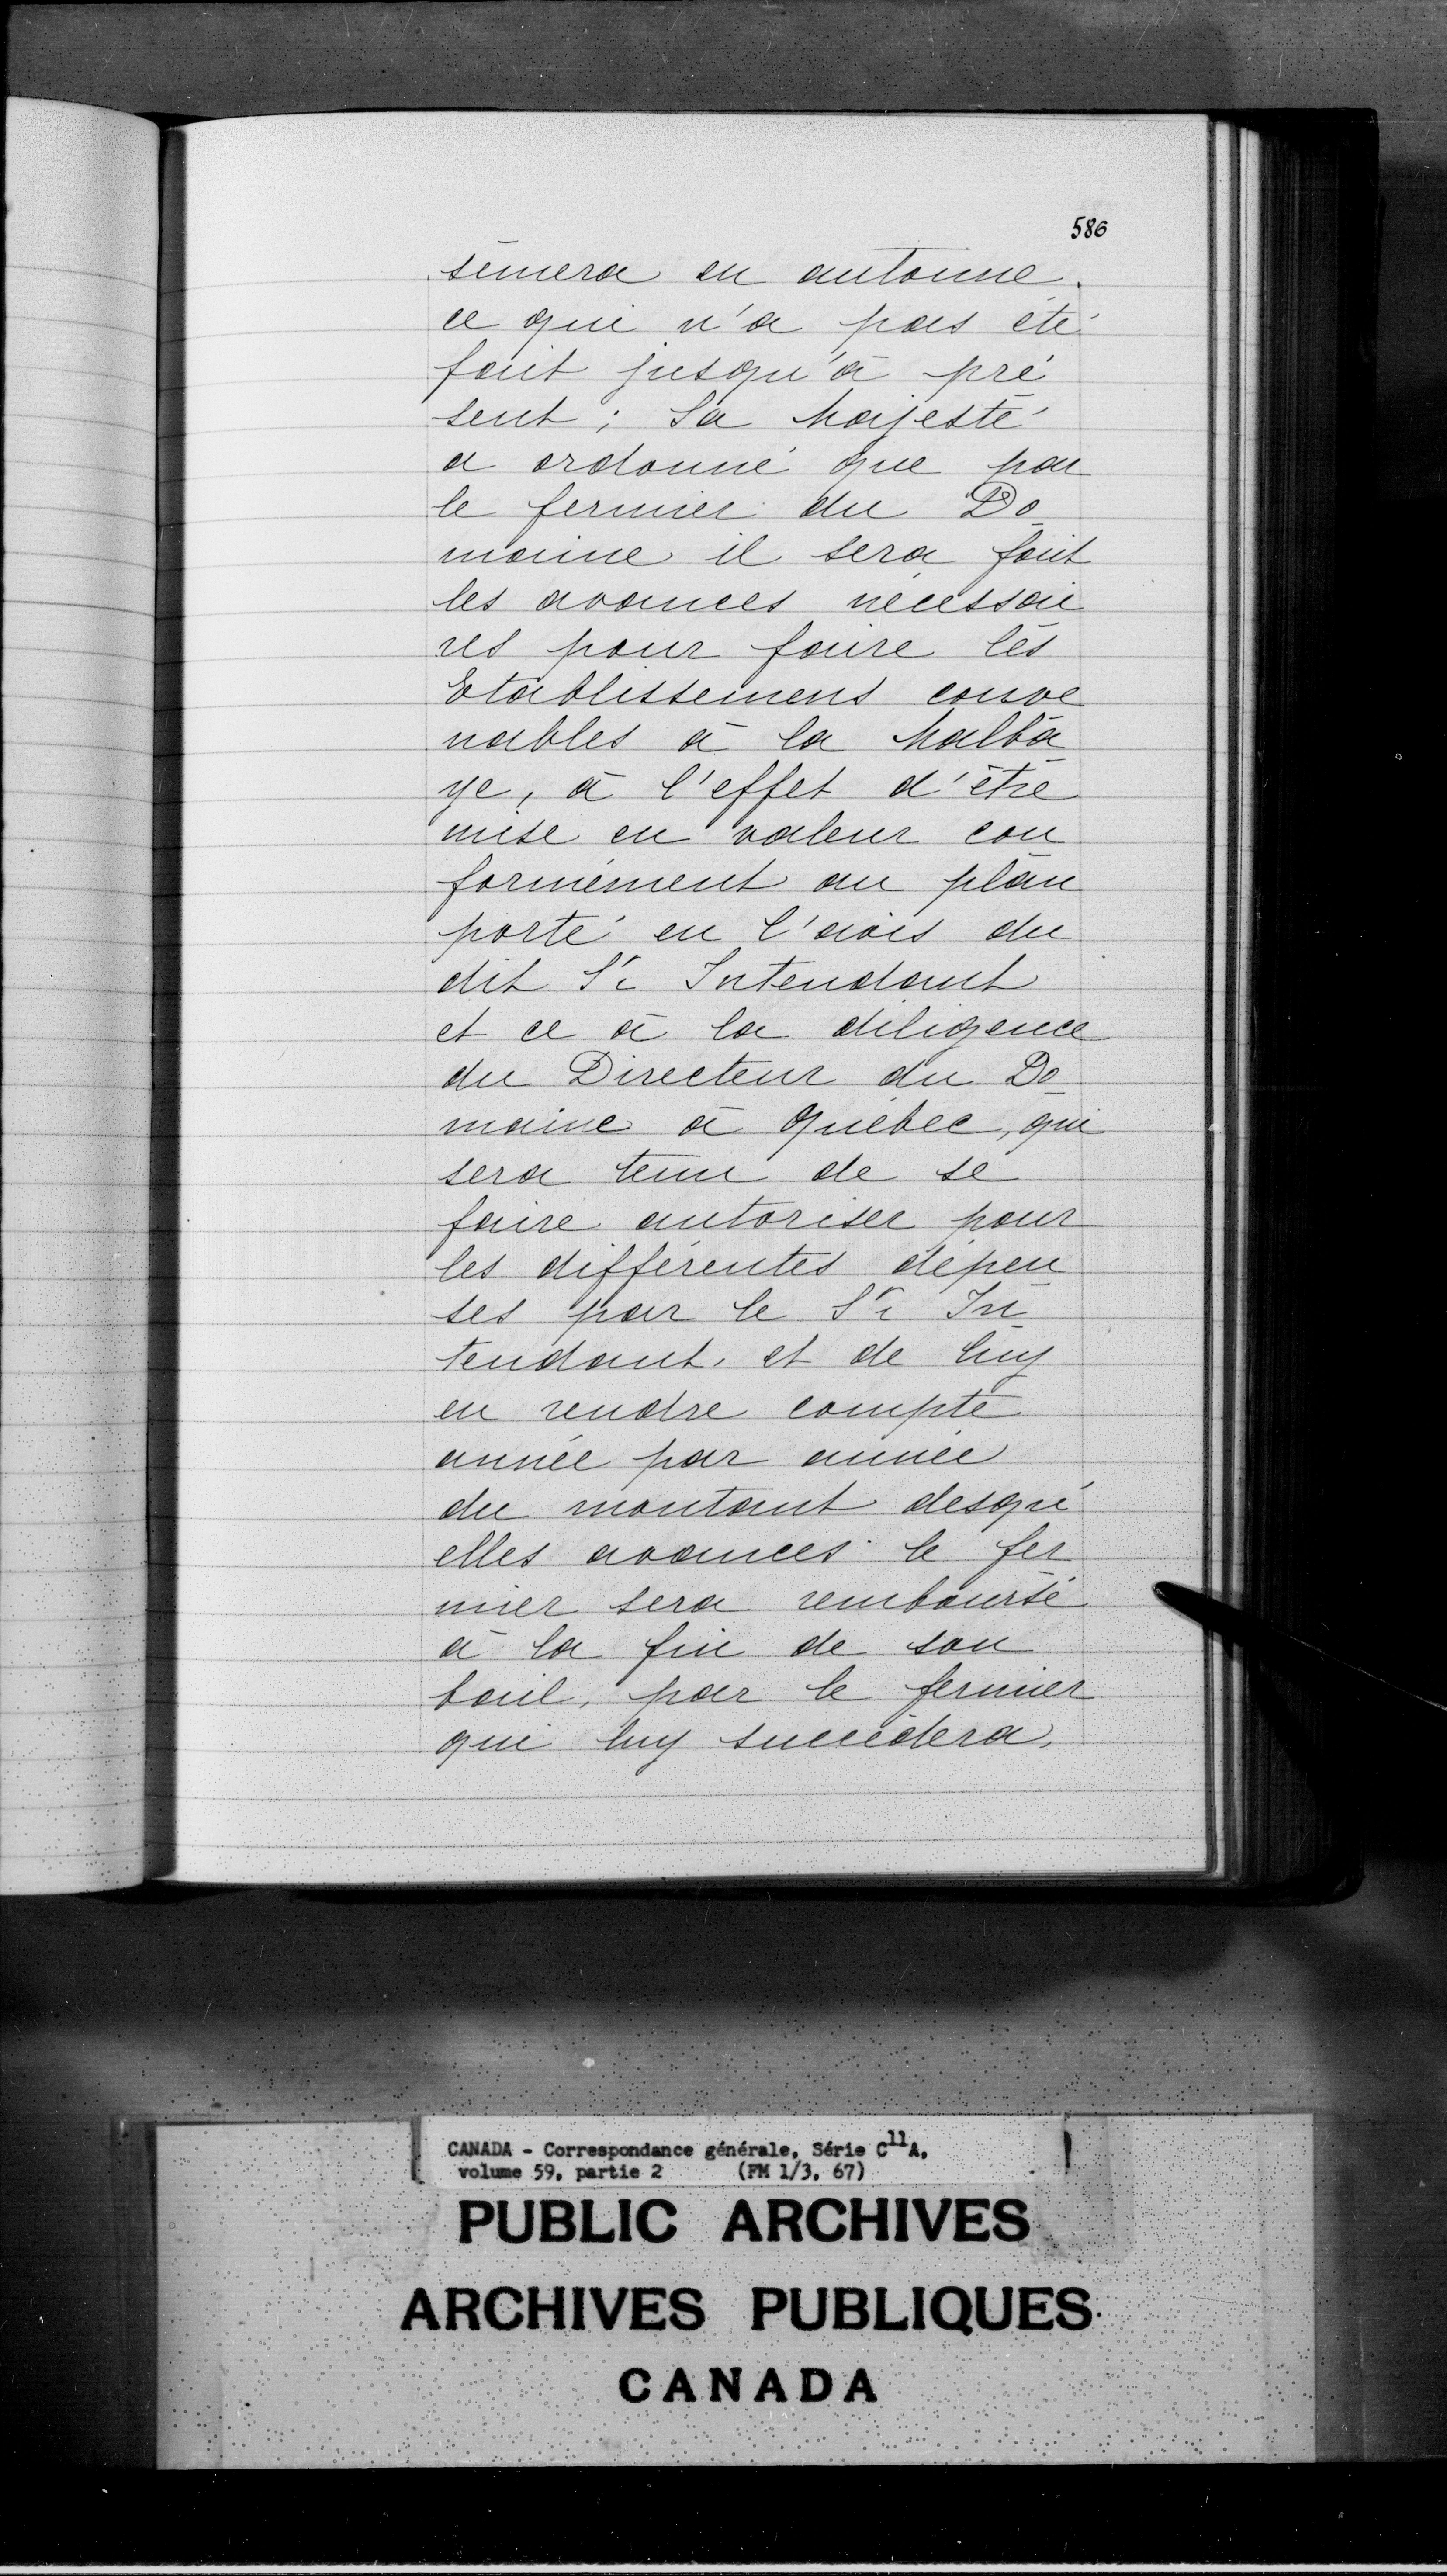 586
sèmera en automne.
ce qui n'a pas été
fait jusqu'à pré
sent; Sa Majesté
a ordonné que par
le fermier du Do
maine il sera fait
les avances nécessai
res pour faire les
Etablissemens conve
nables à la Malba
ye, à l'effet d'être
mise en valeur con
formément au plan
porté en l'avis du
dit Sr. Intendant
et ce à la diligence
du Directeur du Do
maine à Québec, qui
sera tenu de se
faire autoriser pour
les différentes dépen
ses par le Sr. In
tendant. et de luy
en rendre compte
année par année
du montant desqu'
elles avances le fer
mier sera remboursé
à la fin de son
bail, par le fermier
qui luy succèdera.
CANADA - Correspondance générale, Série C11A,
volume 59, partie 2 (FM 1/3, 67)
PUBLIC ARCHIVES
ARCHIVES PUBLIQUES
CANADA